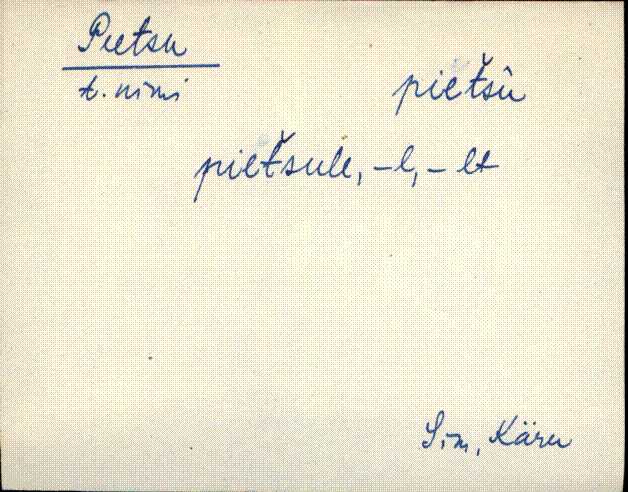 Peetsu
t. nimi
piet̆sù
piet̆sule, -l, -lt
Sim, Käru